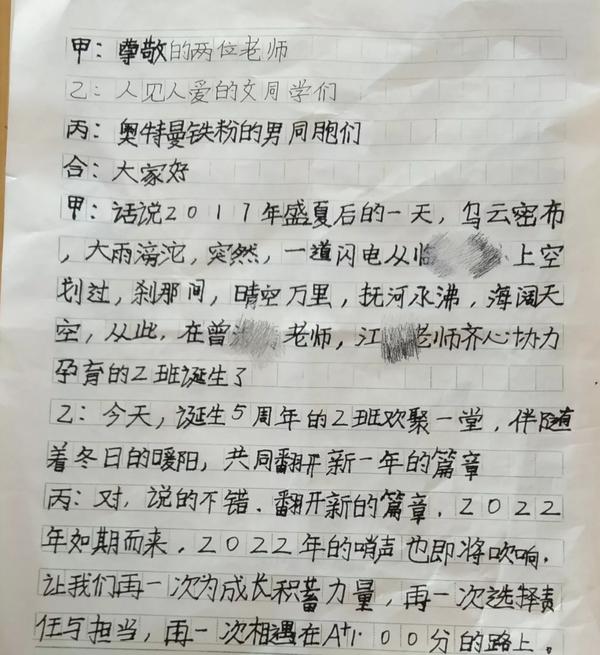 甲：尊敬的两位老师
乙：人见人爱的女同学们
丙：奥特曼铁粉的男同胞们
合：大家好
甲：话说2017年盛夏后的一天，乌云密布
，大雨滂沱，突然，一道闪电从临上空
划过，刹那间，晴空万里，抚河水沸，海阔天
空，从此，在曾老师，江老师齐心协力
孕育的2班诞生了
乙：今天，诞生5周年的2班欢聚一堂，伴随
着冬日的暖阳，共同翻开新一年的篇章
丙：对，说的不错．翻开新的篇章．2022
年如期而来．2022年的哨声也即将吹响．
让我们再一次为成长积蓄力量，再一次选择责
任与担当，再一次相遇在A+1·00分的路上。